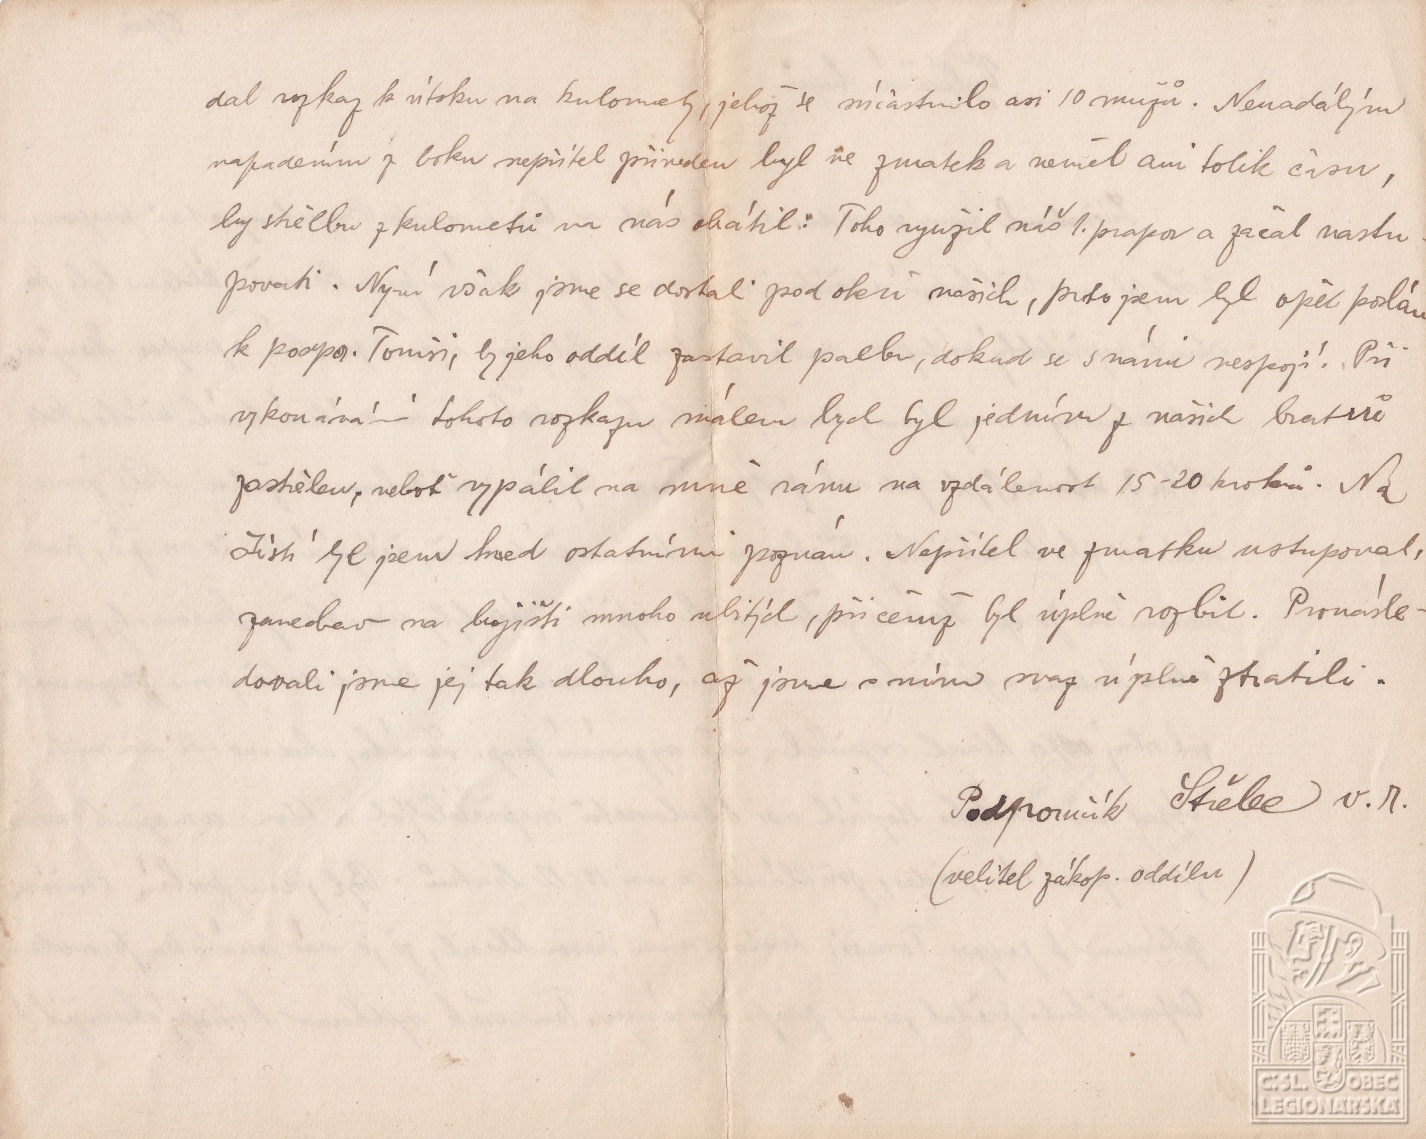 dal rozkaz k útoku na kulomety, jehož se súčastnilo asi 10 mužů. Nenadálým
napadením z boku nepřítel přiveden byl ve zmatek a neměl ani tolik času,
by střelbu z kulometů na nás obátil. Toho využil náš 1. prapor a začal nastu-
povati. Nyní však jsme se dostali pod oheň našich, proto jsem byl opět poslán
k podpor. Tomši, by jeho oddíl zastavil palbu, dokud se s námi nespojí. Při
vykonávání tohoto rozkazu málem bych byl jedním z našich bratrů
zastřelen, neboť vypálil na mně ránu na vzdálenost 15-20 kroků. Na
štěstí byl jsem hned ostatními poznán. Nepřítel ve zmatku ustupoval,
zanechav na bojišti mnoho ubitých, při čemž byl úplně rozbit. Pronásle-
dovali jsme jej tak dlouho, až jsme s ním svaz úplně ztratili.
Podporučík v. r.
(velitel zákop. oddílu)
ČSL. OBEC
LEGIONÁŘSKÁ